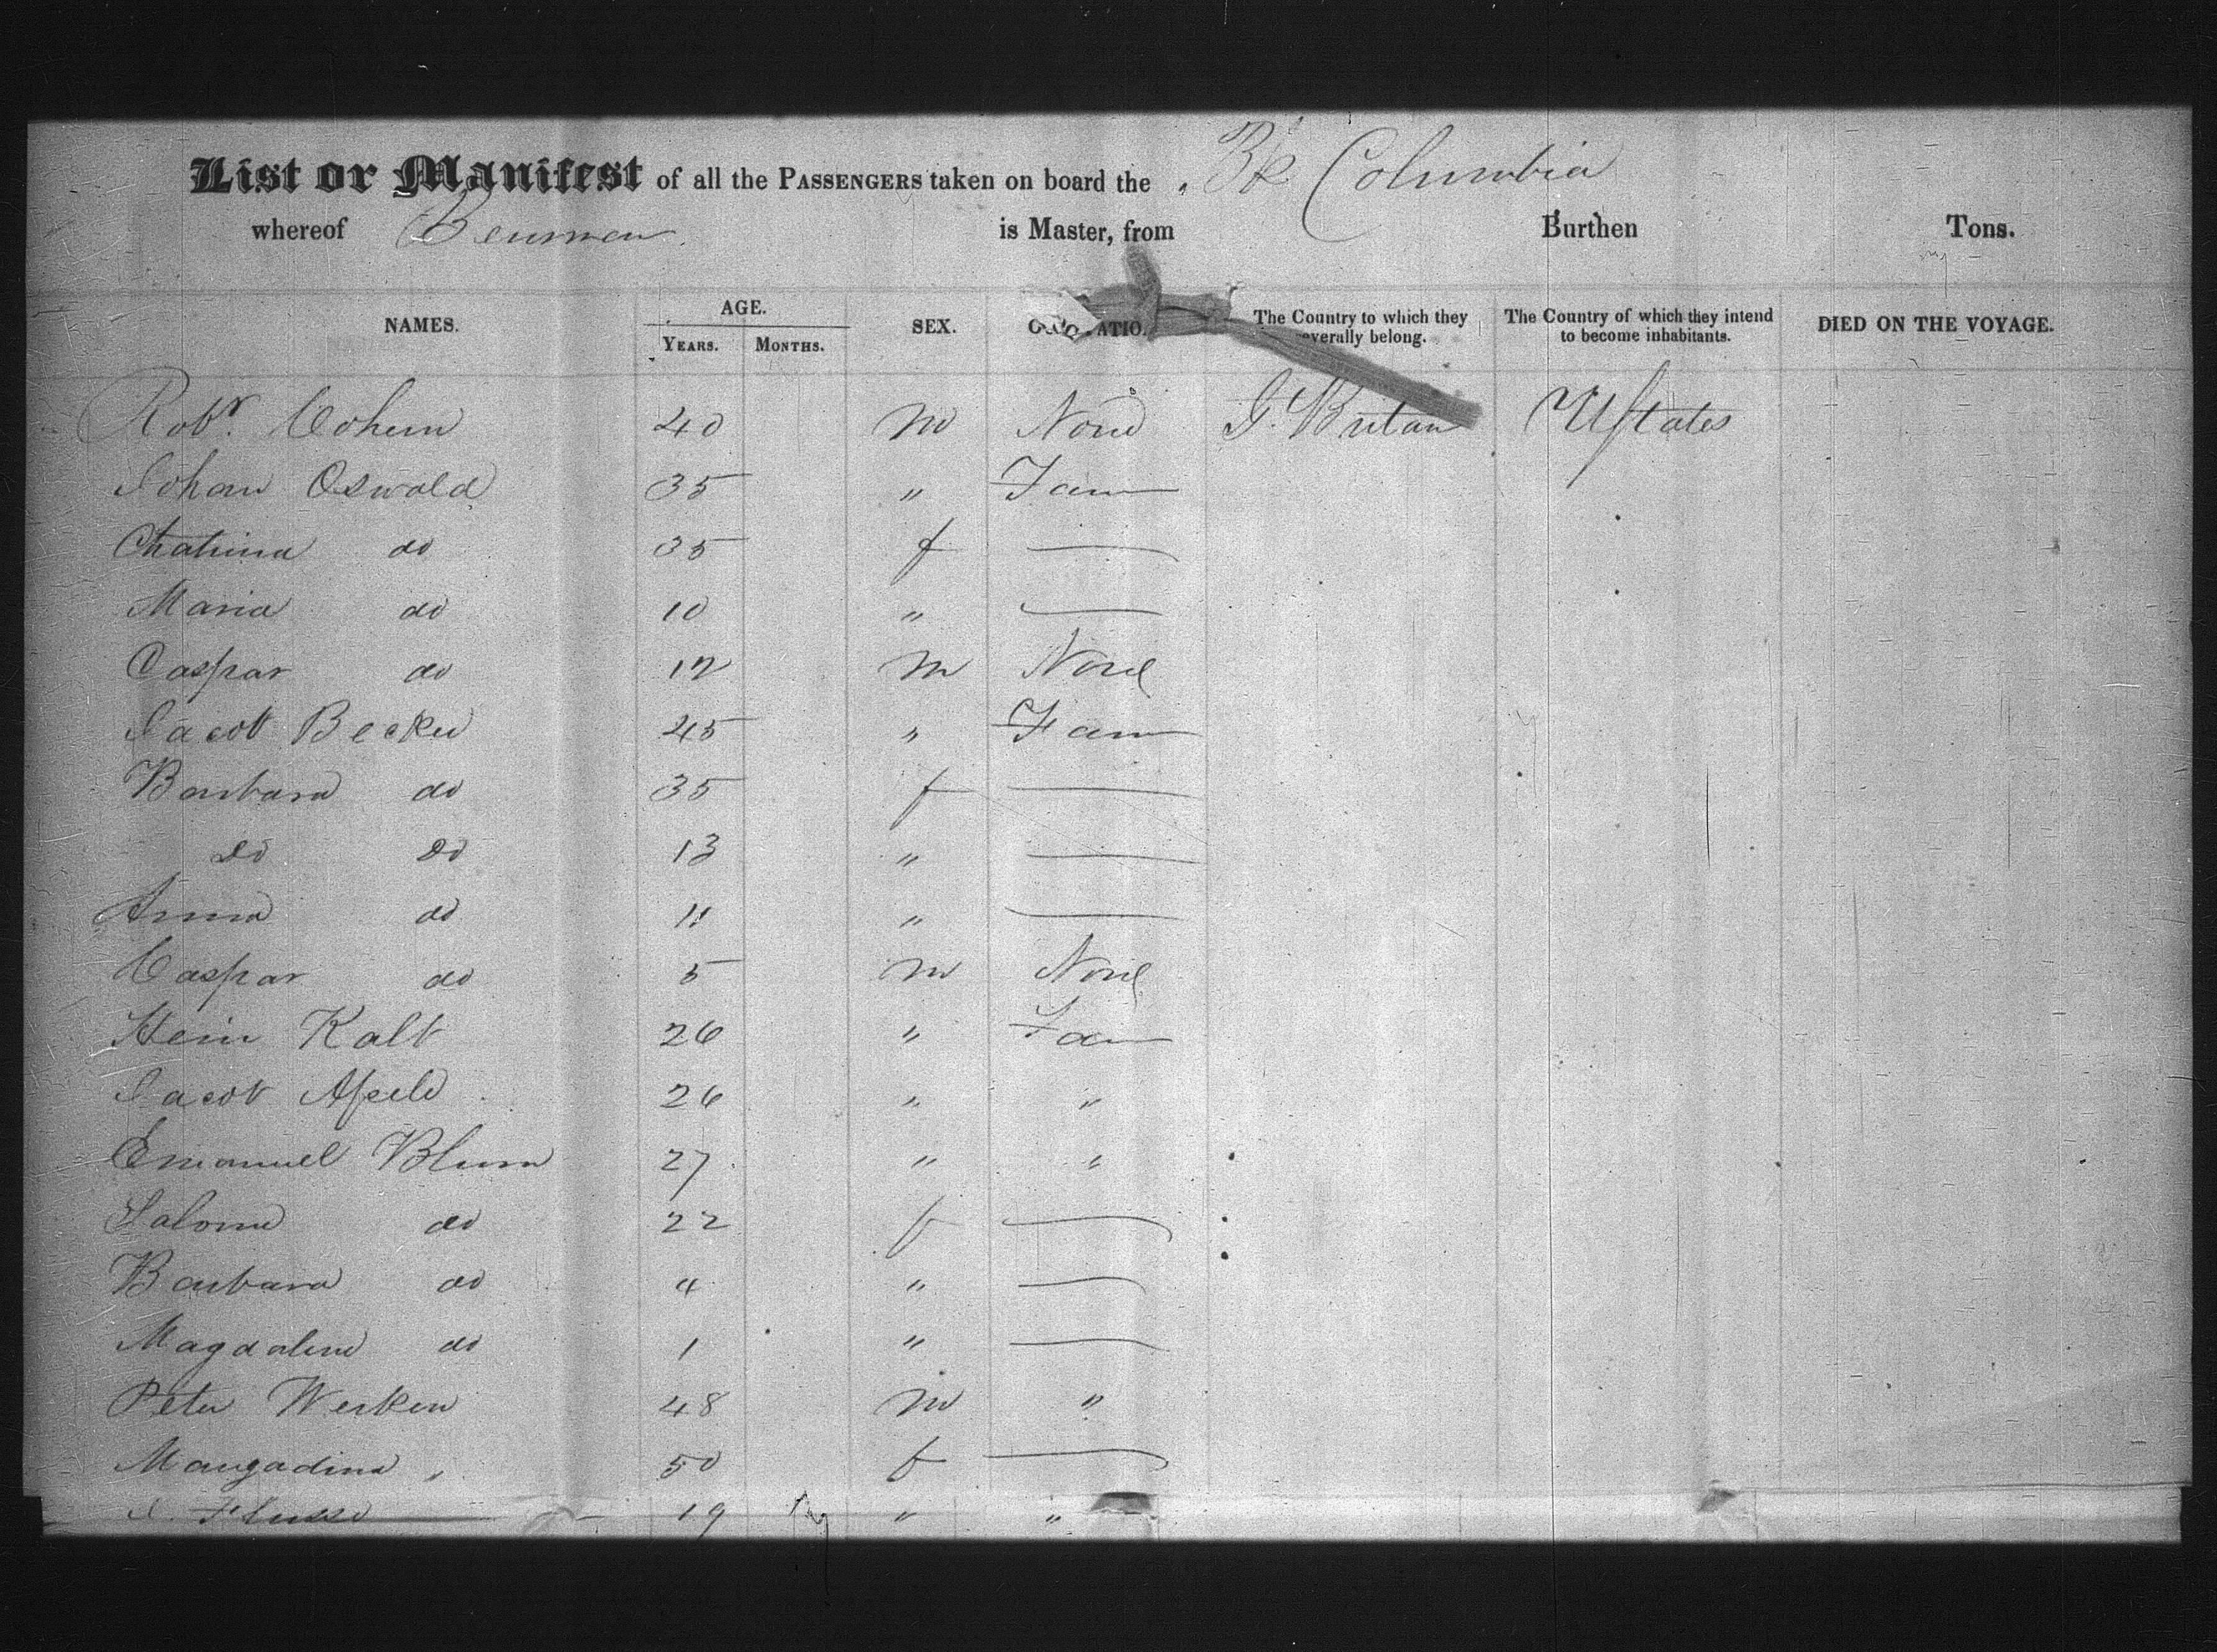 List or Manifest of all the PASSENGERS taken on board the Bk Columbia
whereof is Master, from Burthen Tons.
NAMES. AGE. YEARS. MONTHS. SEX. The Country to which they severally belong. The Country of which they intend to become inhabitants. DIED ON THE VOYAGE.
Robr. 40 m None G. Britain U States
Johan Oswald 35 " Farm
Chatrina do 35 f —
Maria do 10 " —
Caspar do 12 m None
Jacob Becker 45 " Farm
Barbara do 35 f —
Do Do 13 " —
Anna do 11 " —
Caspar do 5 m None
Hein Kalt 26 " Farm
Jacob 26 " "
Emanuel Blum 27 " "
Salome do 22 f —
Barbara do 4 " —
Magdalene do 1 " —
Peter Werken 48 m "
50 f —
19 " "